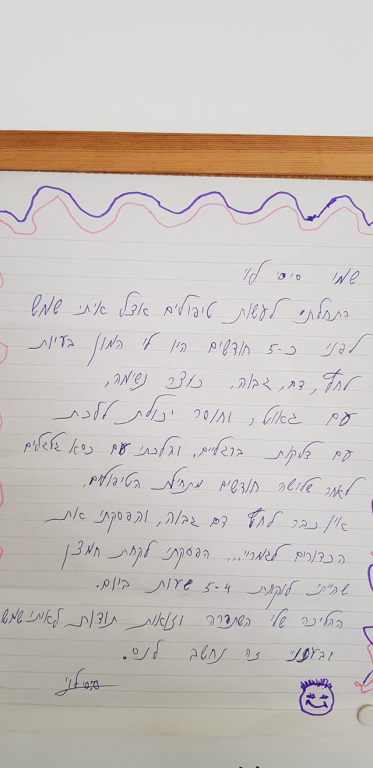 שמי סיסי לוי
התחלתי לעשות טיפולים אצל איתי שמש
לפני כ-5 חודשים היו לי המון בעיות
לחץ, דם, גבוה, קוצר נשימה,
עם גאוט, וחוסר יכולת ללכת
עם דלקות ברגליים, והלכתי עם כסא גלגלים
לאחר שלושה חודשים מתחילת הטיפולים,
אין כבר לחץ דם גבוה, והפסקתי את
הכדורים לגמריי... הפסקתי לקחת חמצן
שהייתי לוקחת 5-4 שעות ביום.
ההליכה שלי השתפרה וזאות תודות לאיתי שמש
ובעיני זה נחשב לנס.
סיסי לוי